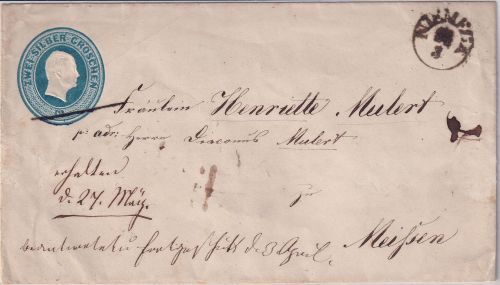 ZWEI SILBER GROSCHEN
NIEMEGK
3
Fräulein Henriette Mulert
p. adr: Herrn Diaconus Mulert
erhalten
d. 27. März.
zu
Meissen
beantwortet u fortgeschickt d. 3 April.